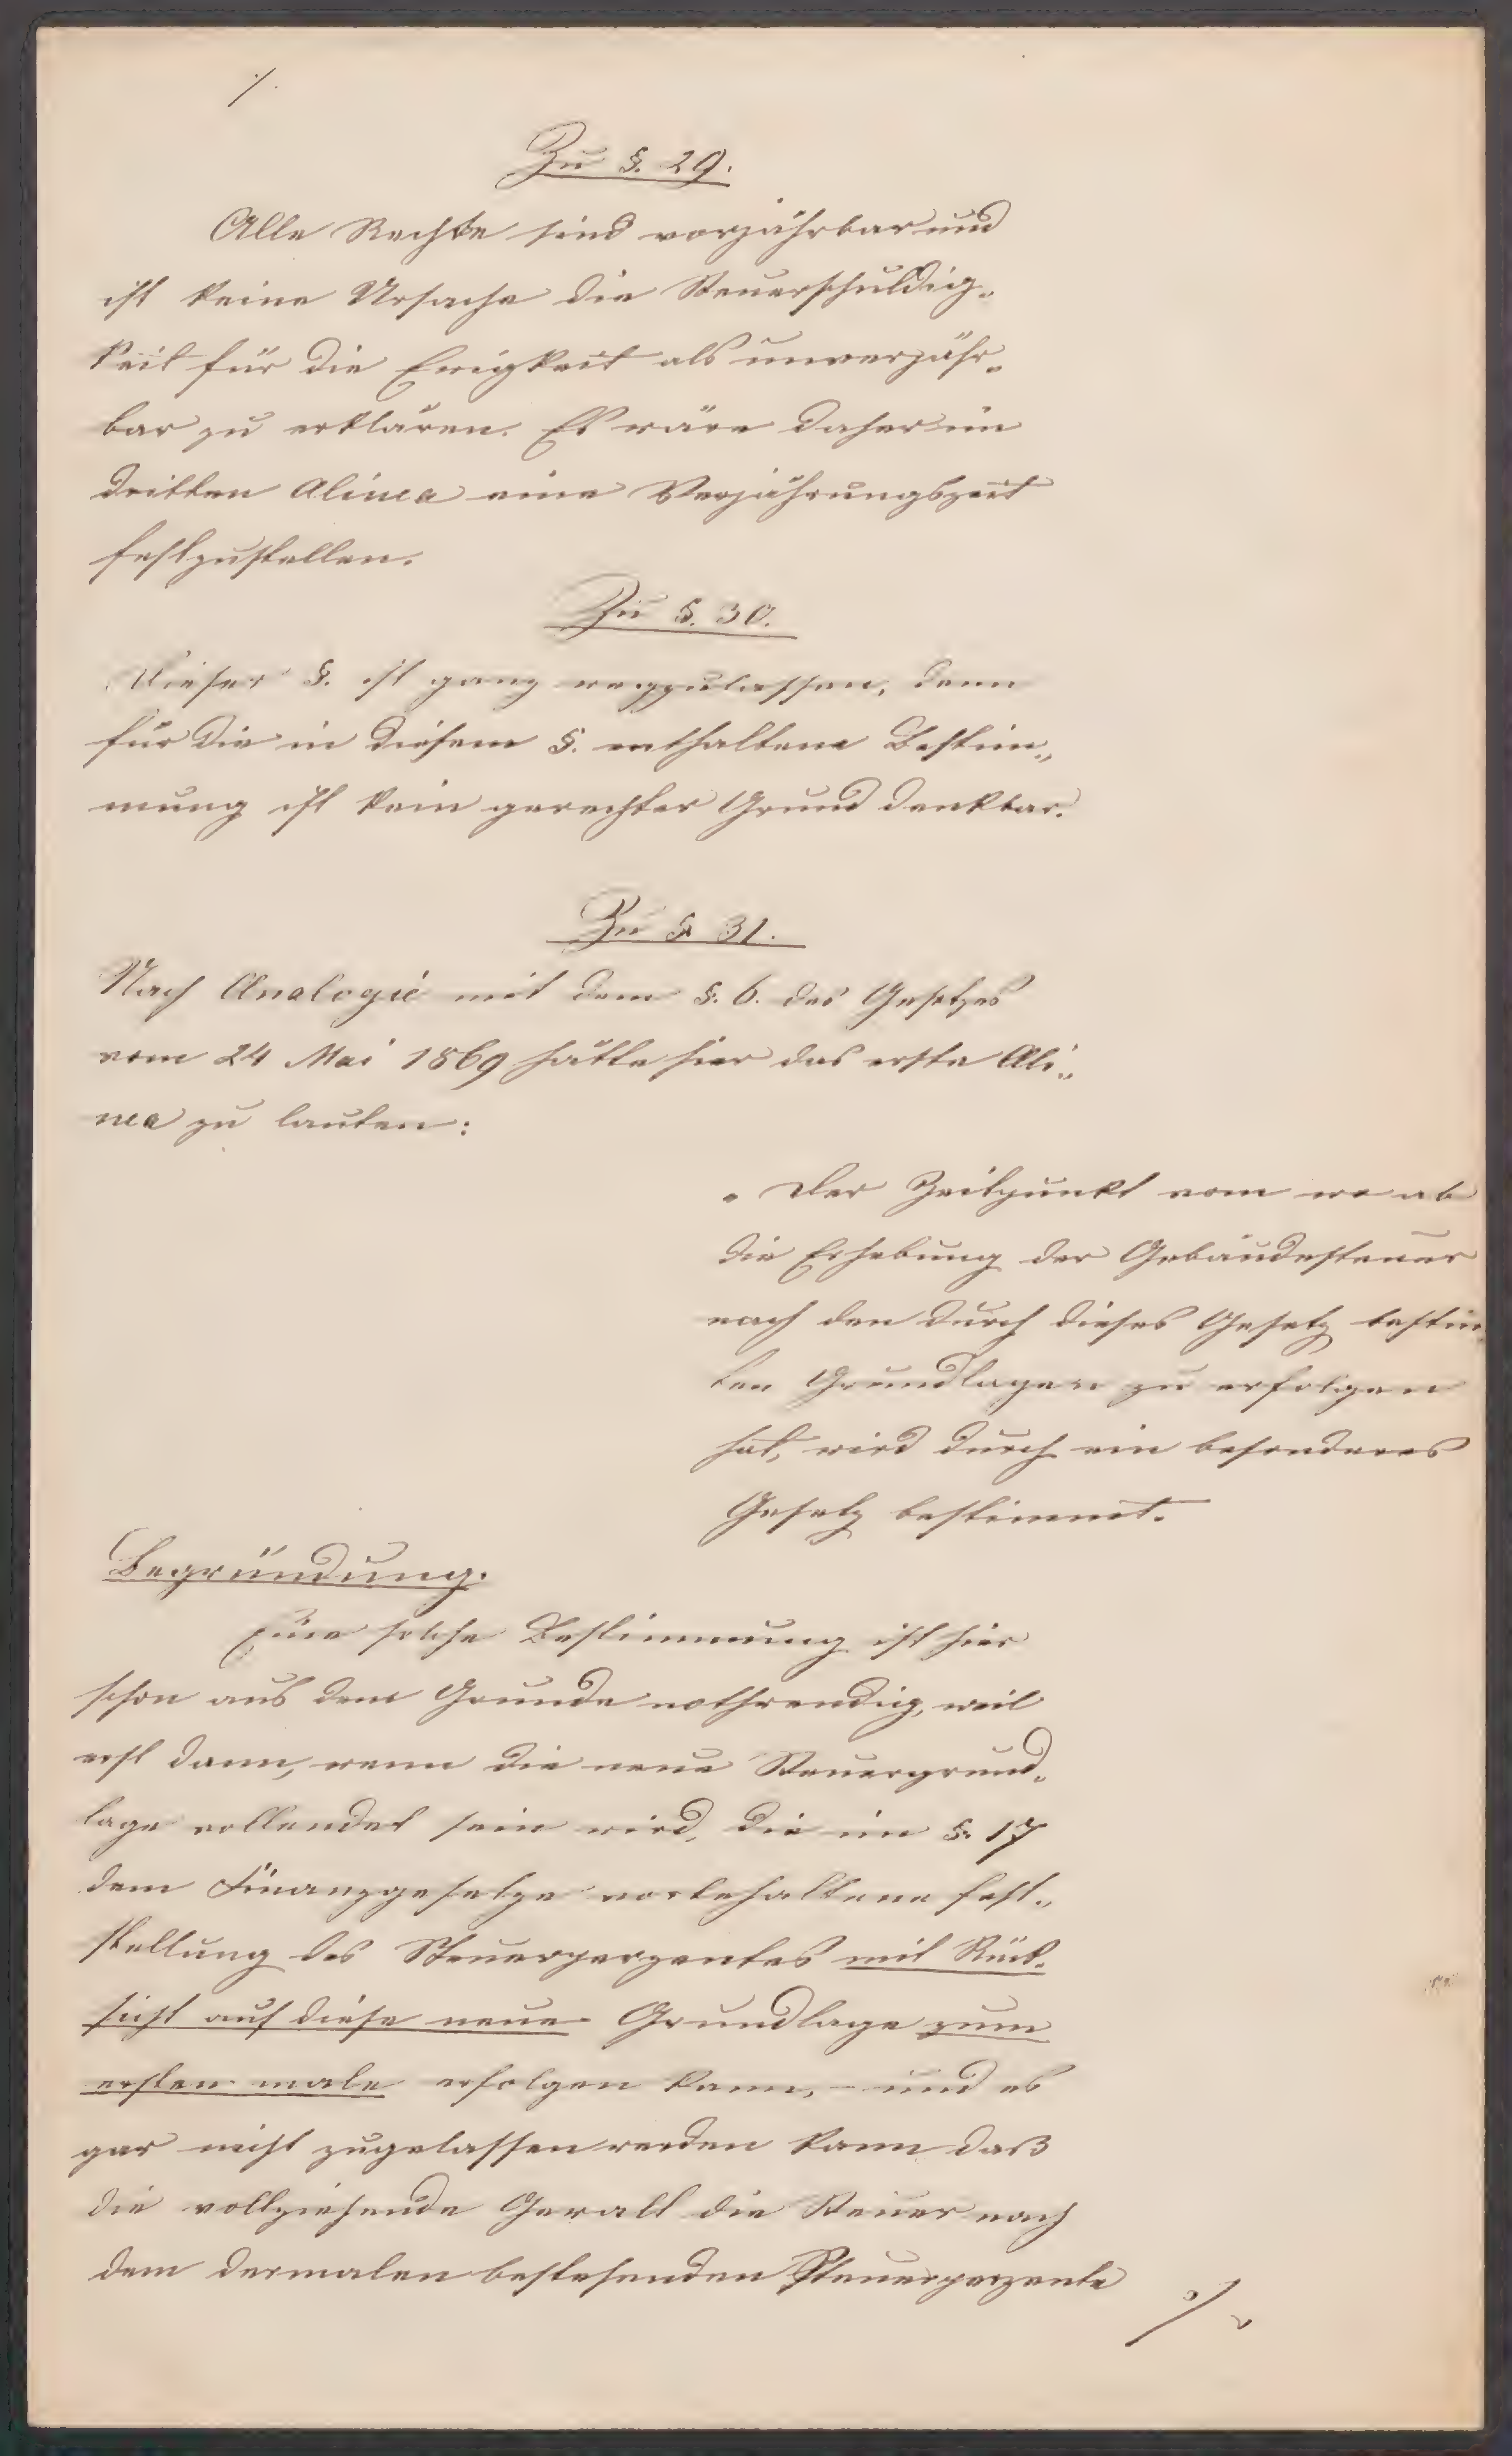 ·/.
Zu §. 29.
Alle Rechte sind vorjährbar und
ist keine Ursache die Steuerschuldig-
keit für die Ewigkeit als unverjähr-
bar zu erklären. Es wäre daher im
dritten Alinea eine Verjährungszeit
festzustellen.
Zu §. 30.
Dieser §. ist ganz wegzulassen, denn
für die in diesem §. enthaltene Bestim„
mung ist kein gerechter Grund denkbar.
Zu § 31.
Nach Analogie mit dem §. 6. des Gesetzes
vom 24 Mai 1869 hätte hier das erste Ali„
nea zu lauten:
„ Der Zeitpunkt vom wo ab
die Erhebung der Gebäudesteuer
nach den durch dieses Gesetz bestim
ten Grundlagen zu erfolgen
hat, wird durch ein besonderes
Gesetz bestimmt.
Begründung.
Eine solche Bestimmung ist hier
schon aus dem Grunde nothwendig, weil
erst dann, wenn die neue Steuergrund-
lage vollendet sein wird, die im §. 17
dem Finanzgesetze vorbehaltene Fest„
stellung des Steuerperzentes mit Rück-
sicht auf diese neue Grundlage zum
ersten male erfolgen kann, – und es
gar nicht zugelassen werden kann daß
die vollziehende Gewalt die Steuer nach
dem dermalen bestehenden Steuerperzente
·/.